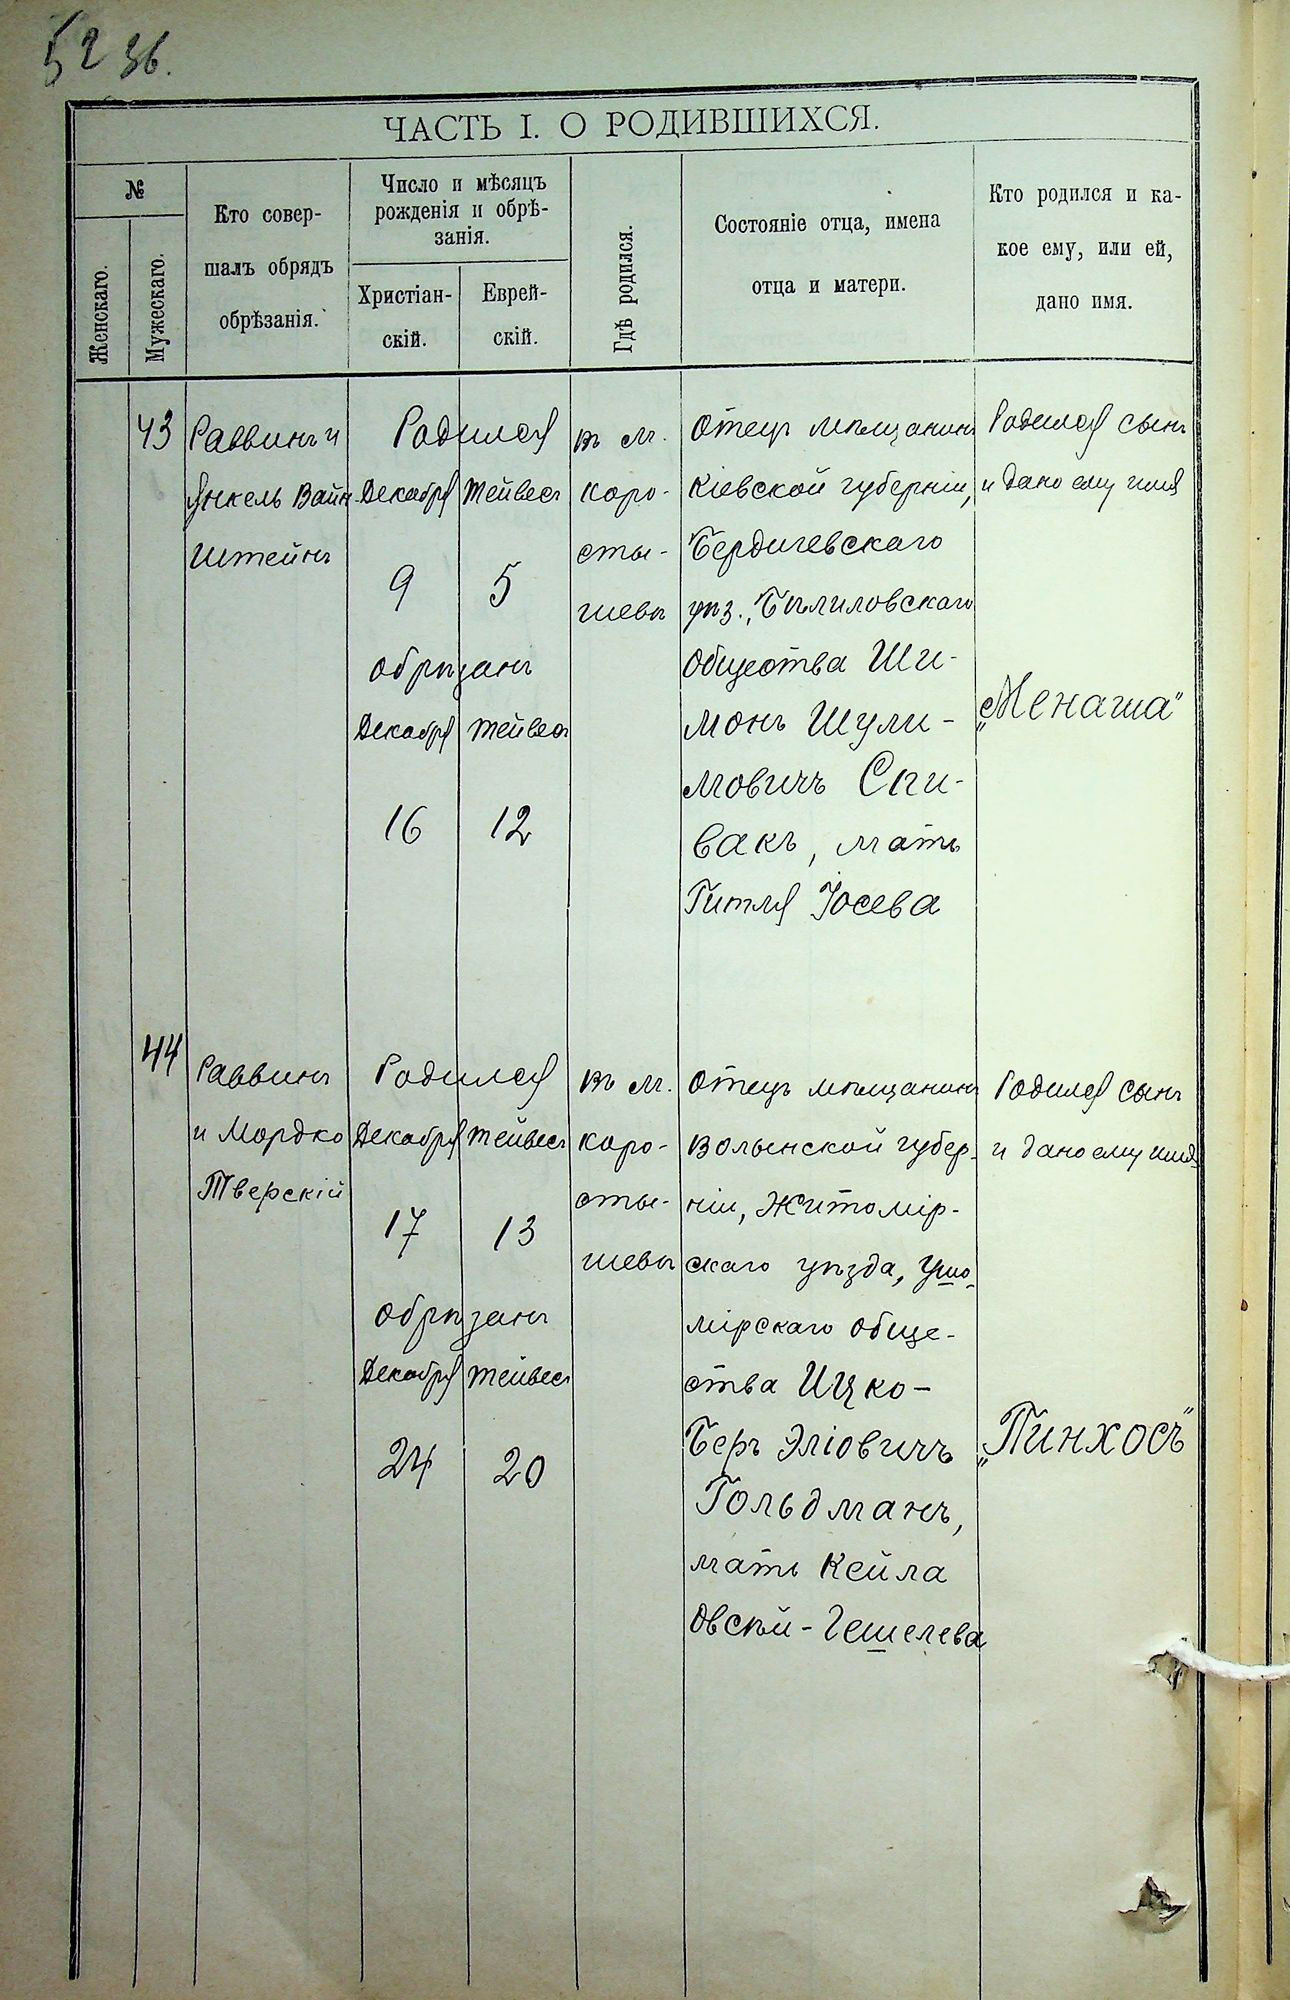 52 36.
ЧАСТЬ I. О РОДИВШИХСЯ.
№
Женскаго.
Мужескаго.
Кто совер-
шалъ обрядъ
обрѣзанія.
Число и мѣсяцъ
рожденія и обрѣ-
занія.
Христіан-
скій.
Еврей-
скій.
Гдѣ родился.
Состояніе отца, имена
отца и матери.
Кто родился и ка-
кое ему, или ей,
дано имя.
43
Раввинъ и
Янкель Вайн-
штейнъ
Родился
Декабря Тейвесъ
9 5
обрѣзанъ
Декабря Тейвесъ
16 12
въ м.
Коро-
сты-
шевѣ
Отецъ мѣщанинъ
Кіевской губерніи,
Бердичевскаго
уѣз., Бѣлиловскаго
Общества Ши-
монъ Шули-
мовичъ Спи-
вакъ, мать
Гитля Іосева
Родился сынъ
и дано ему имя
„Менаша"
44
Раввинъ
и Мордко
Тверскій
Родился
Декабря Тейвесъ
17 13
обрѣзанъ
Декабря Тейвесъ
24 20
въ м.
Коро-
сты-
шевѣ
Отецъ мѣщанинъ
Волынской губер-
ніи, Житомір-
скаго уѣзда, Ушо-
мірскаго обще-
ства Ицко-
Беръ Эліовичъ
Гольдманъ,
мать Кейла
Овсѣй-Гешелева
Родился сынъ
и дано ему имя
„Пинхосъ"